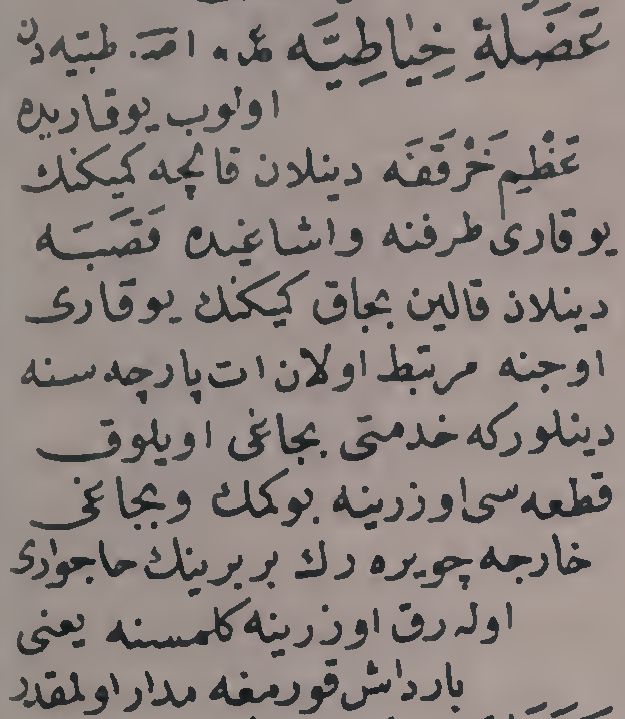 عَضَلَهٔ خِیَاطِیَّه عر. امذ. طبیه دن
اولوب یوقاریده
عَظْمِ حَرْقَفَه دینلان قالچه کمیکنك
یوقاری طرفنه واشاغیده قَصَبَه
دینلان قالین بجاق کمیکنك یوقاری
اوجنه مرتبط اولان ات پارچه سنه
دینلورکه خدمتی بجاغی اویلوق
قطعه سی اوزرینه بوکمك وبجاغی
خارجه چویره رك بربرینك حاجواری
اوله رق اوزرینه کلمسنه یعنی
بارداش قورمغه مدار اولمقدر